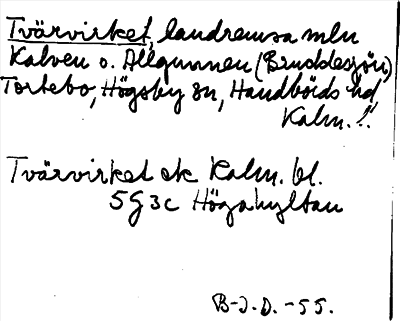 Tvärvirket, landremsa mln
Kalven o. Allgunnen (Bruddesjön)
Tortebo, Högsby sn, Handbörds hd,
Kalm. l.
Tvärvirket ek Kalm. bl.
5G3c Högahyltan
B-J.D. -55.